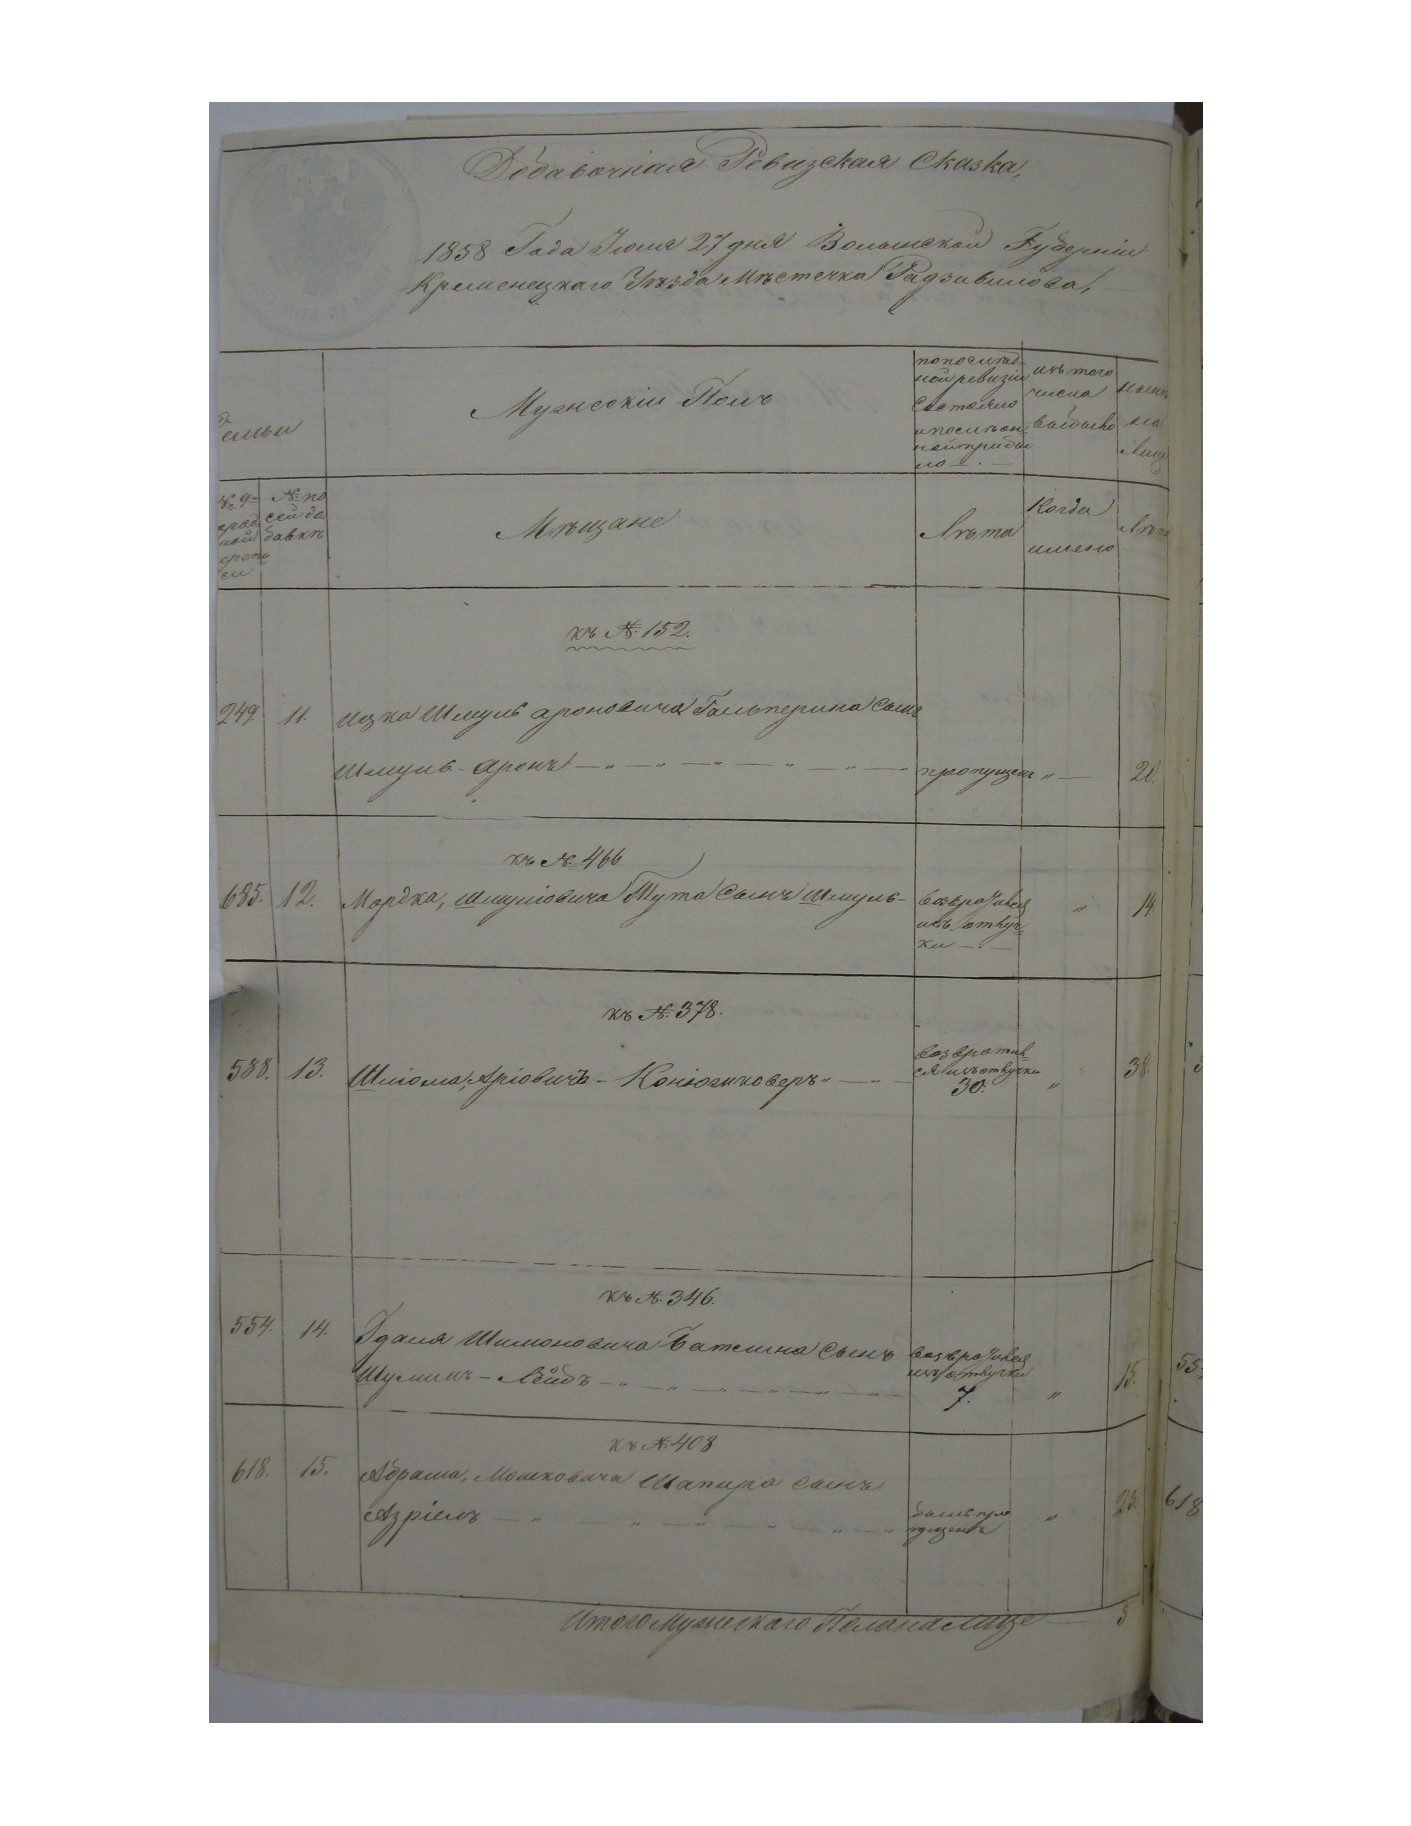 Добавочная Ревизская Сказка,
1858 Года Июля 27 дня Волынской Губерніи
Кременецкаго Уѣзда Мѣстечка Радзивилова,
Семьи
Мужескій Полъ
по послѣд-
ней ревизіи
состояло
и послѣ он-
ной прибы
ло
изъ того
числа
выбыло
нынѣ
на
лице
№ 9-
№ по
сей до
бавкѣ
Мѣщане
Лѣта
Когда
имено
Лѣта
къ №. 152.
249. 11. Ицка Шмуль Ароновича Гальперина сынъ
Шмуль-Аронъ — „ — „ — „ — „ — „ — пропущенъ „ — 20.
къ №. 466
685. 12. Мордка, Шмулiовича Тута Сынъ Шмуль- возвратився „ 14
изъ отлуч-
ки — . —
къ №. 378.
588. 13. Шліома, Аріовичъ - Конюгиковеръ „ — „ — возвратив-
ся изъ отлучки
30. „ 38.
къ №. 346.
554. 14. Гдаля Шимоновича Батлина сынъ возвратився
Шулимъ-Лейбъ — „ — „ — „ — „ — „ — изъ отлучки
7. „ 15.
къ №. 408
618. 15. Абрама, Мошковича Шапира сынъ
Азріель — „ — „ — „ — „ — „ — былъ про
пущенъ „ 25.
Итого Мужескаго Пола на лице — 5